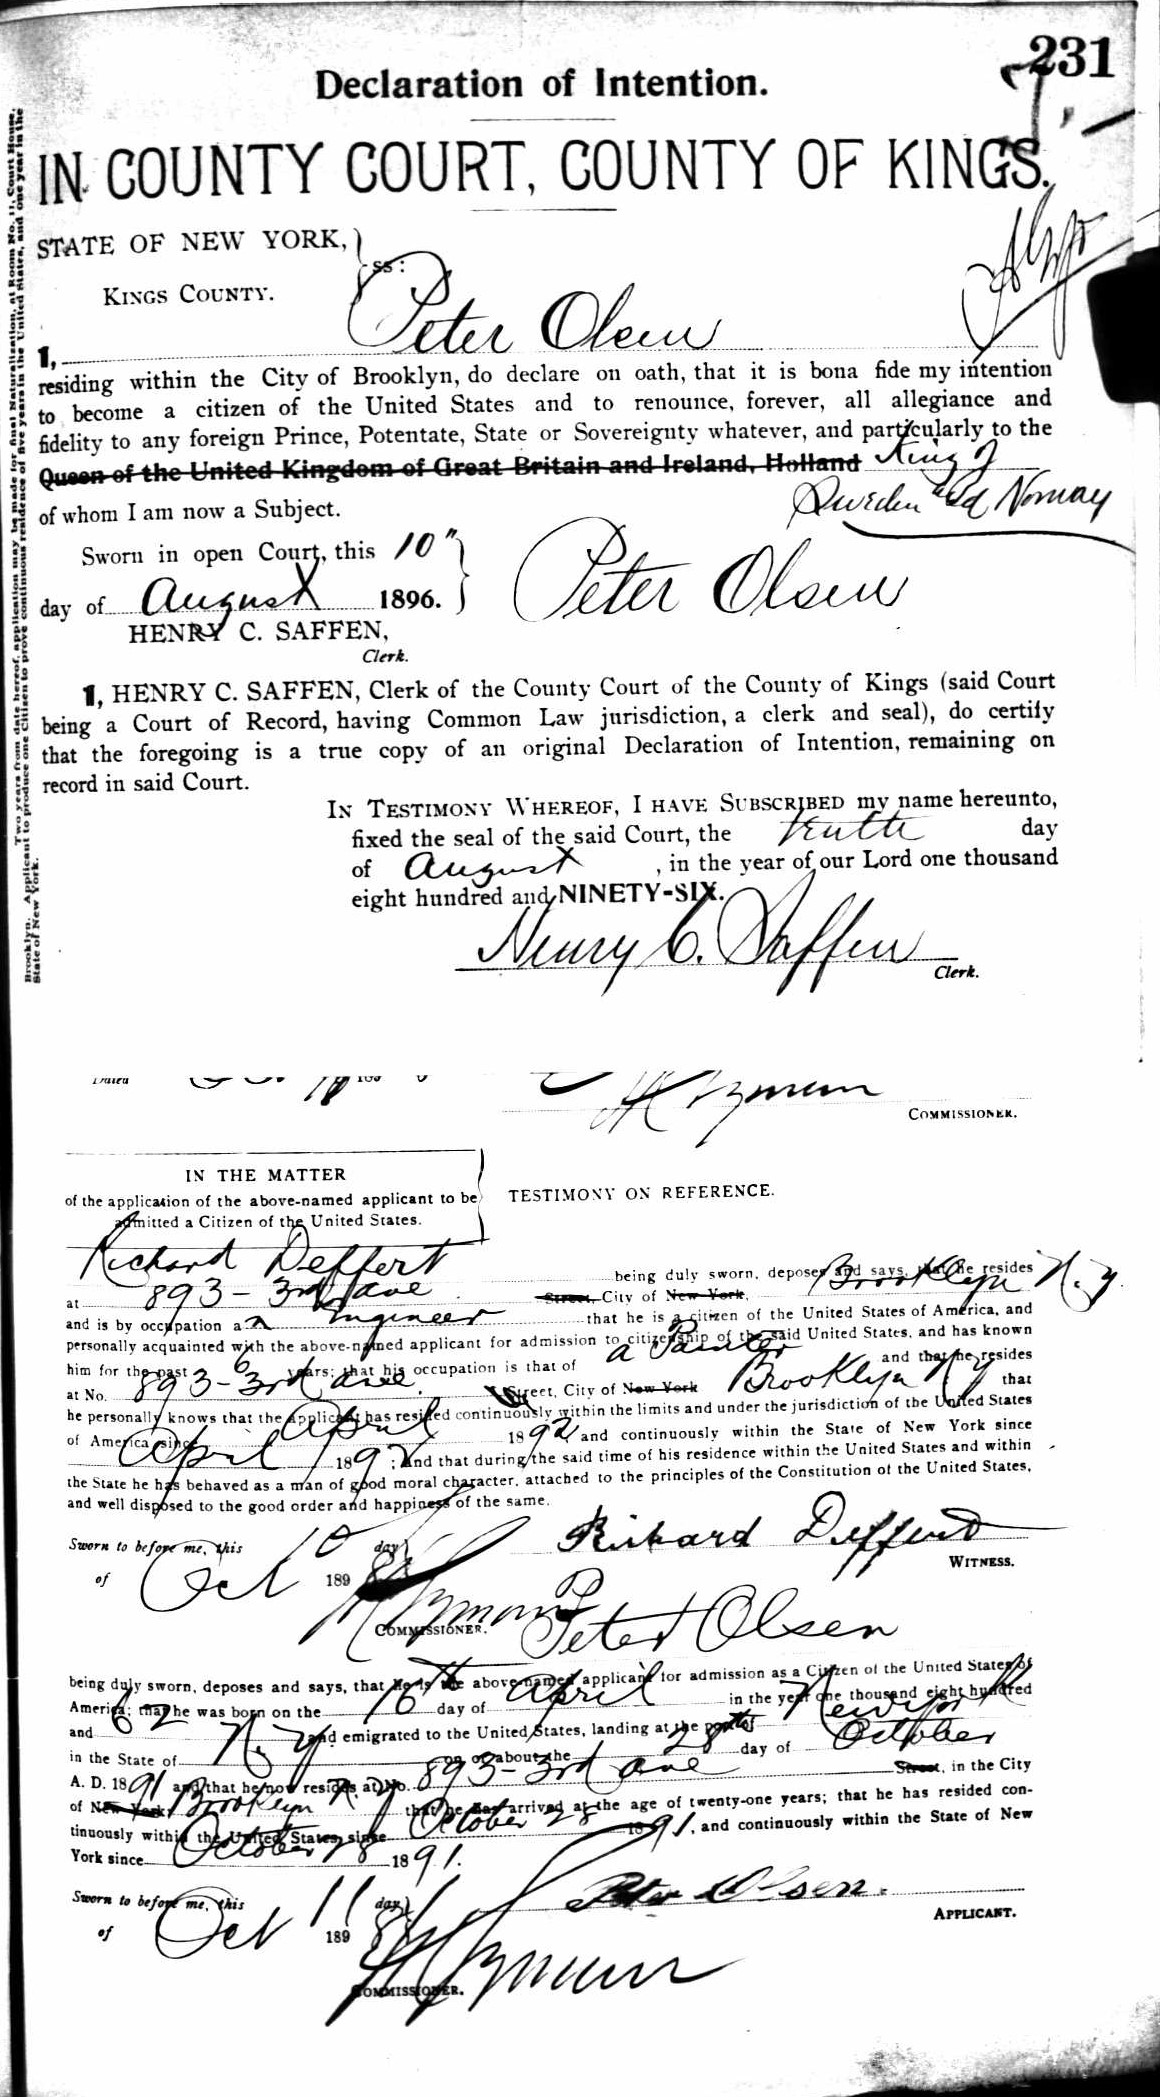 231
Declaration of Intention.
IN COUNTY COURT, COUNTY OF KINGS.
STATE OF NEW YORK,
ss:
KINGS COUNTY.
I, Peter Olsen
residing within the City of Brooklyn, do declare on oath, that it is bona fide my intention
to become a citizen of the United States and to renounce, forever, all allegiance and
fidelity to any foreign Prince, Potentate, State or Sovereignty whatever, and particularly to the
Queen of the United Kingdom of Great Britain and Ireland, Holland King of
Sweden and Norway
of whom I am now a Subject.
Sworn in open Court, this 10"
day of August 1896.
Peter Olsen
HENRY C. SAFFEN,
Clerk.
I, HENRY C. SAFFEN, Clerk of the County Court of the County of Kings (said Court
being a Court of Record, having Common Law jurisdiction, a clerk and seal), do certify
that the foregoing is a true copy of an original Declaration of Intention, remaining on
record in said Court.
IN TESTIMONY WHEREOF, I HAVE SUBSCRIBED my name hereunto,
fixed the seal of the said Court, the tenth day
of August, in the year of our Lord one thousand
eight hundred and NINETY-SIX.
Henry C. Saffen
Clerk.
Two years from date hereof, application may be made for final Naturalization, at Room No. 11, Court House,
Brooklyn. Applicant to produce one Citizen to prove continuous residence of five years in the United States, and one year in the
State of New York.
Dated
COMMISSIONER.
IN THE MATTER
of the application of the above-named applicant to be
admitted a Citizen of the United States.
TESTIMONY ON REFERENCE.
Richard Deffert
being duly sworn, deposes and says, that he resides
at 893 - 3rd ave Street, City of New York, Brooklyn N.y.
and is by occupation a n Engineer that he is a citizen of the United States of America, and
personally acquainted with the above-named applicant for admission to citizenship of the said United States, and has known
him for the past 6 years; that his occupation is that of a Painter and that he resides
at No. 893-3rd ave. Street, City of New York Brooklyn N y that
he personally knows that the applicant has resided continuously within the limits and under the jurisdiction of the United States
of America since April 1892 and continuously within the State of New York since
April 1892; and that during the said time of his residence within the United States and within
the State he has behaved as a man of good moral character, attached to the principles of the Constitution of the United States,
and well disposed to the good order and happiness of the same.
Sworn to before me, this 10 day
of Oct 1898
Richard Deffert
WITNESS.
COMMISSIONER.
Peter Olsen
being duly sworn, deposes and says, that he is the above-named applicant for admission as a Citizen of the United States of
America; that he was born on the 16th day of April in the year one thousand eight hundred
and 62 and emigrated to the United States, landing at the port of New York
in the State of N. y on or about the 28th day of October
A. D. 1891 and that he now resides at No. 893-3rd ave Street, in the City
of New York Brooklyn N. y that he has arrived at the age of twenty-one years; that he has resided con-
tinuously within the United States since October 28 1891, and continuously within the State of New
York since October 28 1891.
Sworn to before me, this 11 day
of Oct 1898
Peter Olsen.
APPLICANT.
COMMISSIONER.